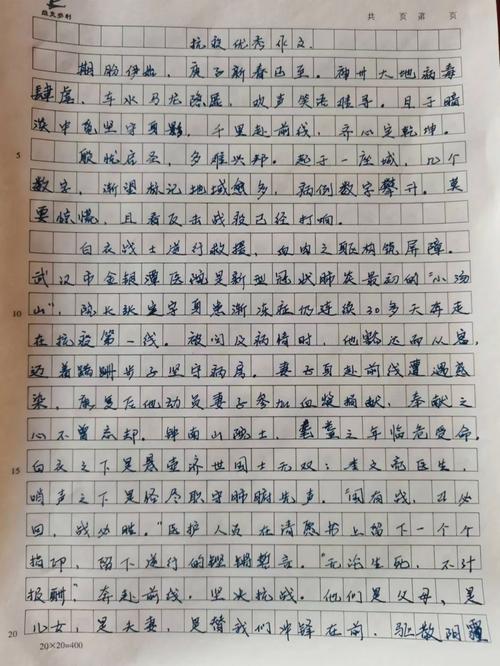 共 页 第 页
抗疫优秀作文.
期盼伊始，庚子新春已至。神州大地病毒
肆虐，车水马龙隐匿，欢声笑语难寻。且于暗
淡中竟坚守身影，千里赴前线，齐心定乾坤。
殷忧启圣，多难兴邦。起于一座城，几个
数字，渐望标记地域愈多，病例数字攀升。莫
要惊慌，且看反击战役已经打响。
白衣战士逆行救援，血肉之躯构筑屏障。
武汉市金银潭医院是新型冠状肺炎最初的"小汤
山"，院长张定宇身患渐冻症仍连续30多天奔走
在抗疫第一线。被问及病情时，他豁达而从容，
迈着蹒跚步子坚守病房。妻子身赴前线遭遇感
染，康复后他动员妻子参加血浆捐献，奉献之
心不曾忘却。钟南山院士，耄耋之年临危受命。
白衣之下是悬壶济世国士无双；李文亮医生，
哨声之下是恪尽职守肺腑先声。"闻有战，召必
回，战必胜。"医护人员在请愿书上留下一个个
指印，留下逆行的铿锵誓言。"无论生死，不计
报酬"奔赴前线，坚决抗战。他们是父母，是
儿女，是夫妻，是替我们冲锋在前，驱散阴霾
5
10
15
20
20×20=400